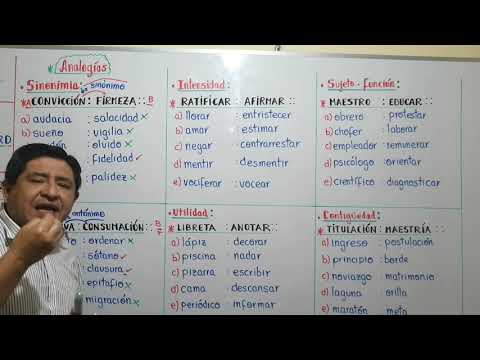 Analogías
• Sinonimia: sinónimo
* A CONVICCIÓN : FIRMEZA :: B
a) audacia : salacidad x
b) sueño : vigilia x
: olvido x
: fidelidad ✓
: palidez x
• Intensidad:
* RATIFICAR : AFIRMAR ::
a) llorar : entristecer
b) amar : estimar
c) negar : contrarrestar
d) mentir : desmentir
e) vociferar : vocear
• Sujeto - Función:
* MAESTRO : EDUCAR ::
a) obrero : protestar
b) chofer : laborar
c) empleador : remunerar
d) psicólogo : orientar
e) científico : diagnosticar
antónimo
VA : CONSUMACIÓN :: B
F
: ordenar x
: sótano ✓
: clausura ✓
: epitafio x
: migración x
• Utilidad:
* LIBRETA : ANOTAR ::
a) lápiz : decorar
b) piscina : nadar
c) pizarra : escribir
d) cama : descansar
e) periódico : informar
• Contigüedad:
* TITULACIÓN : MAESTRÍA ::
a) ingreso : postulación
b) principio : borde
c) noviazgo : matrimonio
d) laguna : orilla
e) maratón : meta